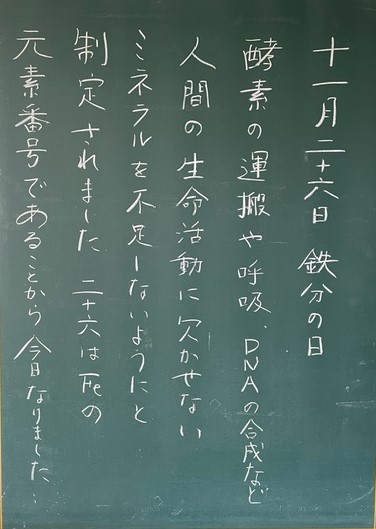 十一月二十六日 鉄分の日
酵素の運搬や呼吸、DNAの合成など
人間の生命活動に欠かせない
ミネラルを不足しないようにと
制定されました 二十六はFeの
元素番号であることから今日なりました…